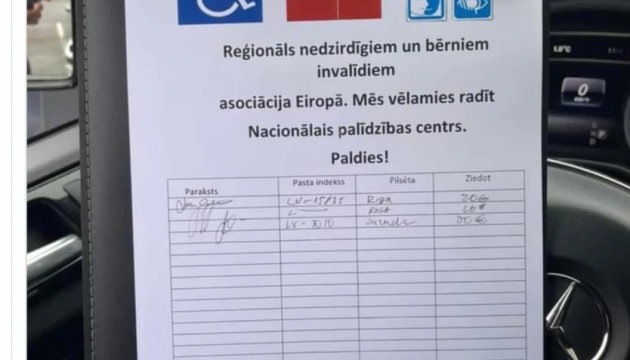 Reģionāls nedzirdīgiem un bērniem
invalīdiem
asociācija Eiropā. Mēs vēlamies radīt
Nacionālais palīdzības centrs.
Paldies!
Paraksts Pasta indekss Pilsēta Ziedot
Riga 20€
20€
LV-
0